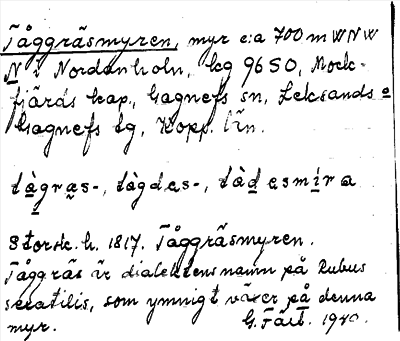 Tåggräsmyren, myr c:a 700 m WNW
N i Nordanholn, kg 9650, Mock-
fjärds kap., Gagnefs sn, Leksands o
Gagnefs tg, Kopp. län.
tàgras-, tàgdas-, tàdasmira
Storsk. h. 1817. Tåggräsmyren.
Tåggräs är dialektens namn på Rubus
saxatilis, som ymnigt växer på denna
myr. G. Täit. 1940.